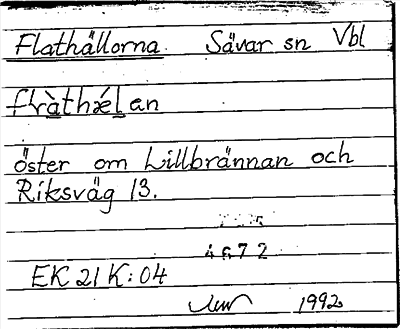 Flathällorna Sävar sn Vbl
flàthǽlan
öster om Lillbrännan och
Riksväg 13.
4672
EK 21 K:04
1992